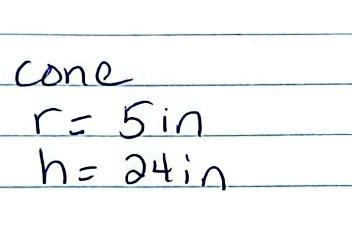 cone
r= 5in
h= 24in